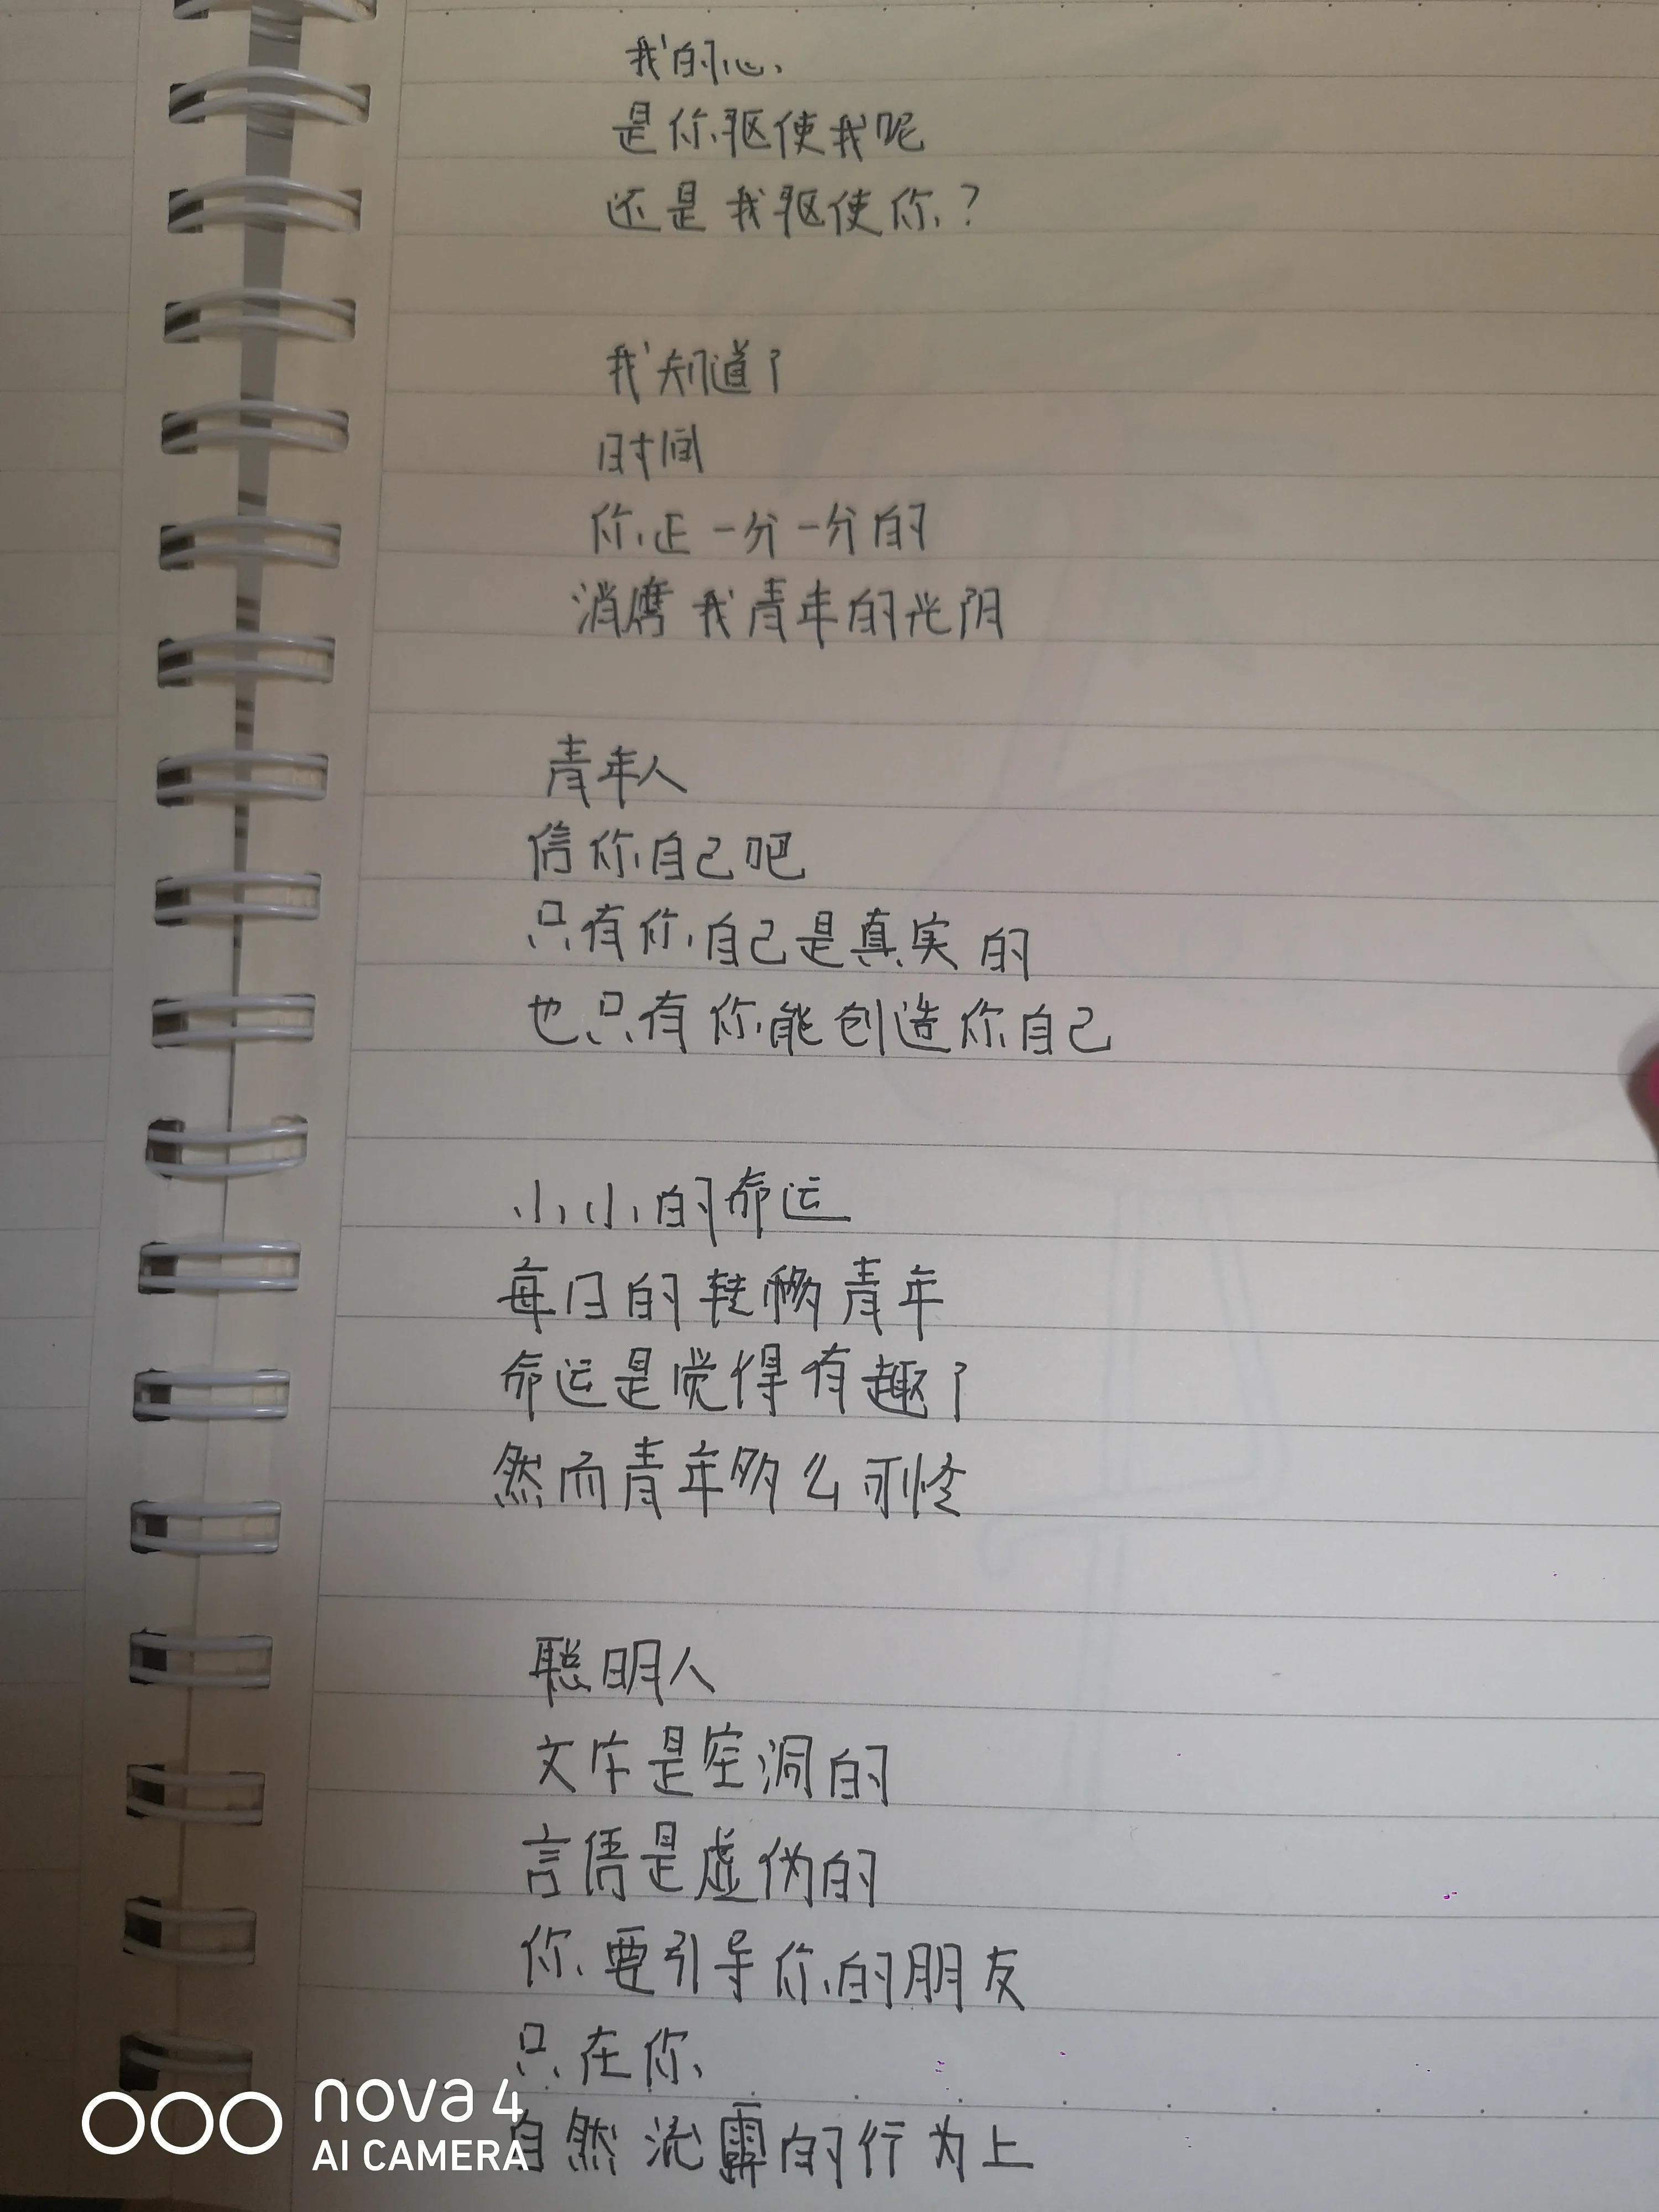 我的心
是你驱使我呢
还是我驱使你?
我知道了
时间
你正一分一分的
消磨我青年的光阴
青年人
信你自己吧
只有你自己是真实的
也只有你能创造你自己
小小的命运
每日的转移青年
命运是觉得有趣了
然而青年多么可怜
聪明人
文字是空洞的
言语是虚伪的
你要引导你的朋友
只在你
自然流露的行为上
nova 4
AI CAMERA